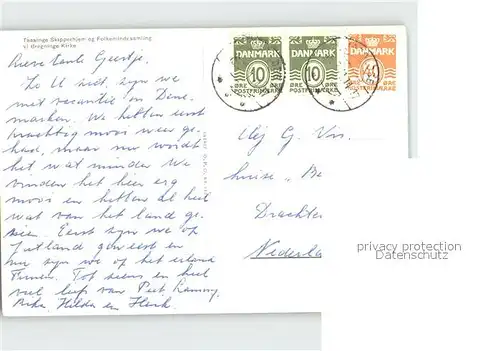 Taasinge Skippershjem og Folkemindesamling
vi Bregninge Kirke
Lieve tante Geertje.
Zo U ziet, zijn we
met vacantie in Dene-
marken. We hebben eerst
prachtig mooi weer ge-
had, maar nu wordt
het wat minder. We
vinden het hier erg
mooi en hebben al heel
wat van het land ge-
zien. Eerst zijn we op
Jutland geweest en
nu zijn we op het eiland
Funen. Tot ziens en heel
veel liefs van Piet, Lammy,
Rika, Hilda en Henk.
DANMARK
10
ØRE ØRE
POSTFRIMÆRKE
DANMARK
10
ØRE ØRE
POSTFRIMÆRKE
DANMARK
ØRE ØRE
POSTFRIMÆRKE
Mej G. Vis
huize "Be
Drachte
Nederla
privacy protection
Datenschutz